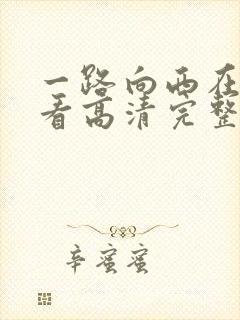 一路向西在
看高清完整
辛蜜蜜